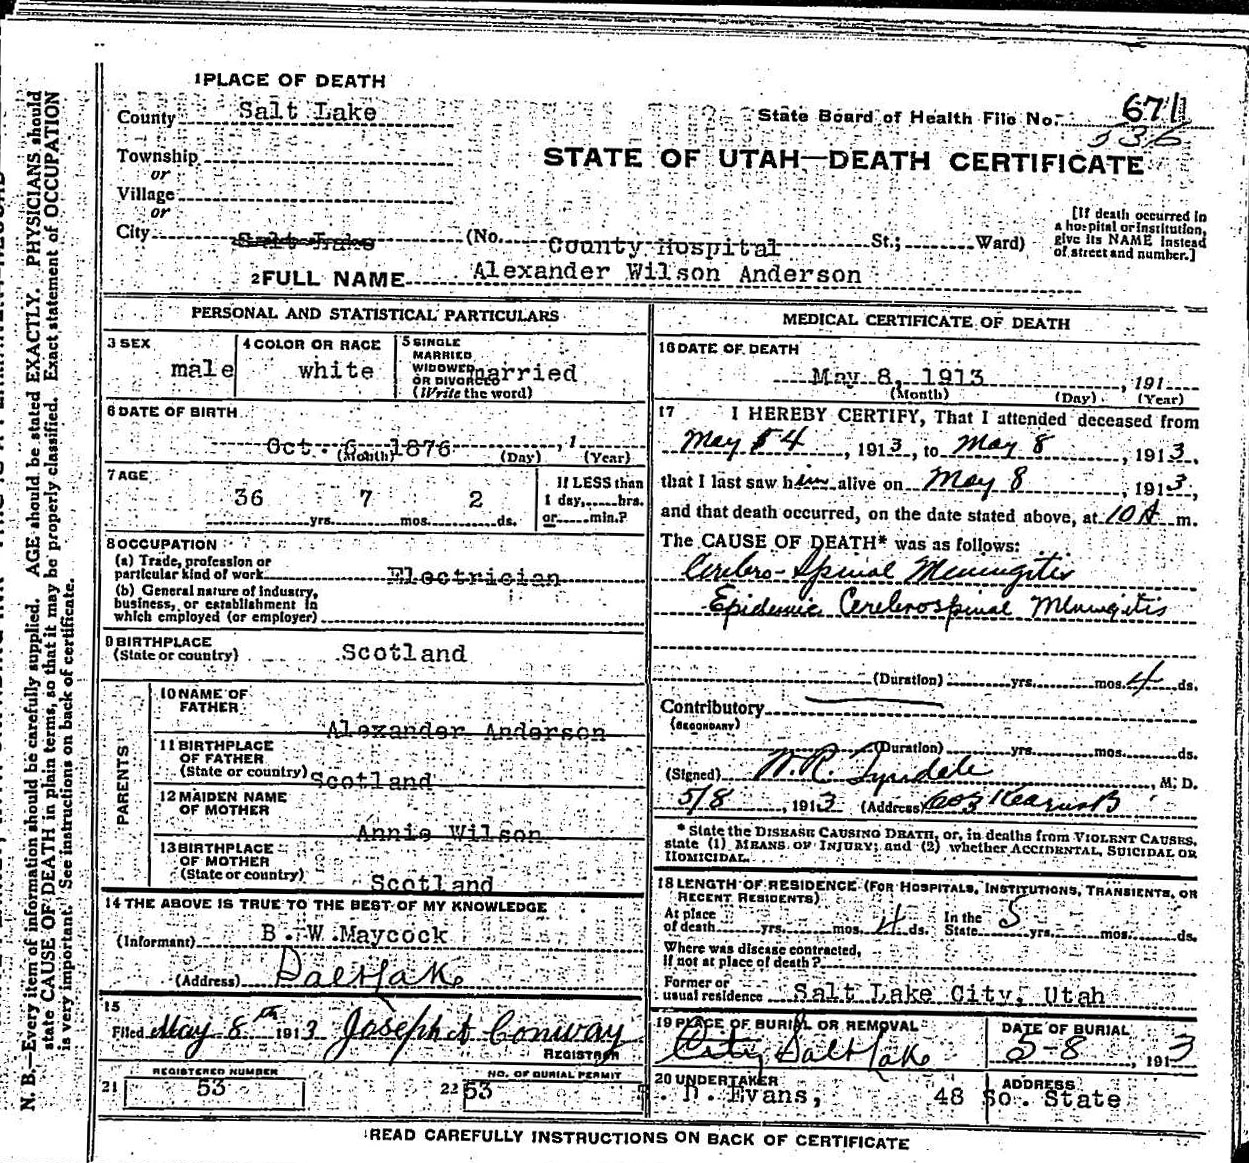 1 PLACE OF DEATH
County Salt Lake
State Board of Health File No. 6711
536
Township
or
Village
or
City Salt Lake (No. County Hospital St.; Ward)
[If death occurred in
a hospital or institution,
give its NAME instead
of street and number.]
STATE OF UTAH—DEATH CERTIFICATE
2 FULL NAME Alexander Wilson Anderson
PERSONAL AND STATISTICAL PARTICULARS
3 SEX
male
4 COLOR OR RACE
white
5 SINGLE
MARRIED
WIDOWED
OR DIVORCED
(Write the word)
married
6 DATE OF BIRTH
Oct. 6 1876 , 1
(Month) (Day) (Year)
7 AGE
36 yrs. 7 mos. 2 ds.
If LESS than
1 day, hrs.
or min.?
8 OCCUPATION
(a) Trade, profession or
particular kind of work Electrician
(b) General nature of industry,
business, or establishment in
which employed (or employer)
9 BIRTHPLACE
(State or country) Scotland
PARENTS
10 NAME OF
FATHER
Alexander Anderson
11 BIRTHPLACE
OF FATHER
(State or country) Scotland
12 MAIDEN NAME
OF MOTHER
Annie Wilson
13 BIRTHPLACE
OF MOTHER
(State or country) Scotland
14 THE ABOVE IS TRUE TO THE BEST OF MY KNOWLEDGE
(Informant) B. W. Maycock
(Address) Salt Lake
15
Filed May 8th 1913 Joseph A Conway
REGISTRAR
21 REGISTERED NUMBER 53
22 NO. OF BURIAL PERMIT 53
MEDICAL CERTIFICATE OF DEATH
16 DATE OF DEATH
May 8, 1913 , 191
(Month) (Day) (Year)
17 I HEREBY CERTIFY, That I attended deceased from
May 5 4 , 1913, to May 8 , 1913,
that I last saw him alive on May 8 , 1913,
and that death occurred, on the date stated above, at 10 A m.
The CAUSE OF DEATH* was as follows:
Cerebro-Spinal Meningitis
Epidemic Cerebrospinal Meningitis
(Duration) yrs. mos. 4 ds.
Contributory
(SECONDARY)
(Duration) yrs. mos. ds.
(Signed) W. R. Tyndale , M. D.
5/8 , 1913 (Address) 603 Kearns B
* State the DISEASE CAUSING DEATH, or, in deaths from VIOLENT CAUSES,
state (1) MEANS OF INJURY; and (2) whether ACCIDENTAL, SUICIDAL OR
HOMICIDAL.
18 LENGTH OF RESIDENCE (FOR HOSPITALS, INSTITUTIONS, TRANSIENTS, OR
RECENT RESIDENTS)
At place
of death yrs. mos. 4 ds. In the
State 5 yrs. mos. ds.
Where was disease contracted,
if not at place of death?
Former or
usual residence Salt Lake City, Utah
19 PLACE OF BURIAL OR REMOVAL
City, Salt Lake
DATE OF BURIAL
5-8 , 1913
20 UNDERTAKER
. D. Evans,
ADDRESS
48 So. State
READ CAREFULLY INSTRUCTIONS ON BACK OF CERTIFICATE
N. B.—Every item of information should be carefully supplied. AGE should be stated EXACTLY. PHYSICIANS should
state CAUSE OF DEATH in plain terms, so that it may be properly classified. Exact statement of OCCUPATION
is very important. See instructions on back of certificate.